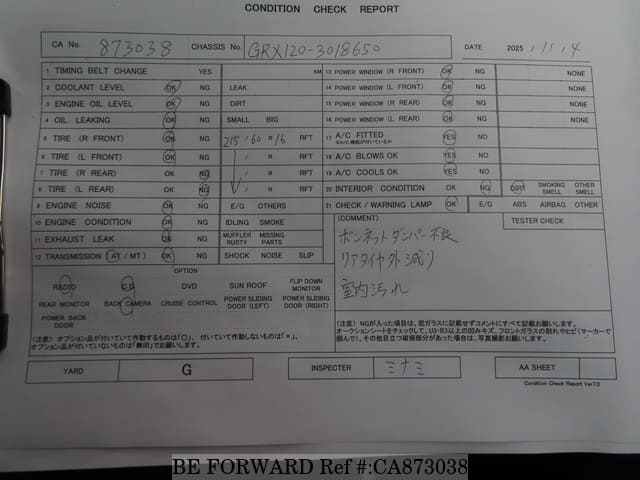 CONDITION CHECK REPORT
CA No. 873038 CHASSIS No. GRX120-3018650 DATE 2025 . 11 . 4
1 TIMING BELT CHANGE YES KM 13 POWER WINDOW (R FRONT) OK NG NONE
2 COOLANT LEVEL OK NG LEAK 14 POWER WINDOW (L FRONT) OK NG NONE
3 ENGINE OIL LEVEL OK NG DIRT 15 POWER WINDOW (R REAR) OK NG NONE
4 OIL LEAKING OK NG SMALL BIG 16 POWER WINDOW (L REAR) OK NG NONE
5 TIRE (R FRONT) OK NG 215 / 60 R 16 RFT 17 A/C FITTED YES NO
6 TIRE (L FRONT) OK NG / R RFT 18 A/C BLOWS OK YES NO
7 TIRE (R REAR) OK NG / R RFT 19 A/C COOLS OK YES NO
8 TIRE (L REAR) OK NG / R RFT 20 INTERIOR CONDITION OK NG DIRT SMOKING SMELL OTHER SMELL
9 ENGINE NOISE OK NG E/G OTHERS 21 CHECK / WARNING LAMP OK E/G ABS AIRBAG OTHER
10 ENGINE CONDITION OK NG IDLING SMOKE
11 EXHAUST LEAK OK NG MUFFLER RUSTY MISSING PARTS
12 TRANSMISSION (AT / MT) OK NG SHOCK NOISE SLIP
(COMMENT) TESTER CHECK
ボンネットダンパー不良
リアタイヤ外減り
室内汚れ
OPTION
RADIO CD DVD SUN ROOF FLIP DOWN MONITOR
REAR MONITOR BACK CAMERA CRUISE CONTROL POWER SLIDING DOOR (LEFT) POWER SLIDING DOOR (RIGHT)
POWER BACK DOOR
(注意) オプション品が付いていて作動するものは「○」、付いていて作動しないものは「×」、
オプション品が付いていないものは「無印」でお願いします。
(注意) NGが入った項目は、窓ガラスに記載せずコメントにすべて記載お願いします。
オークションシートをチェックして、U3・B3以上の凹みキズ、フロントガラスの割れやヒビ(マーカーで
囲んで)、その他目立つ破損部分があった場合は、写真撮影お願いします。
YARD G INSPECTER ミナミ AA SHEET
Condition Check Report Ver7.0
BE FORWARD Ref #:CA873038